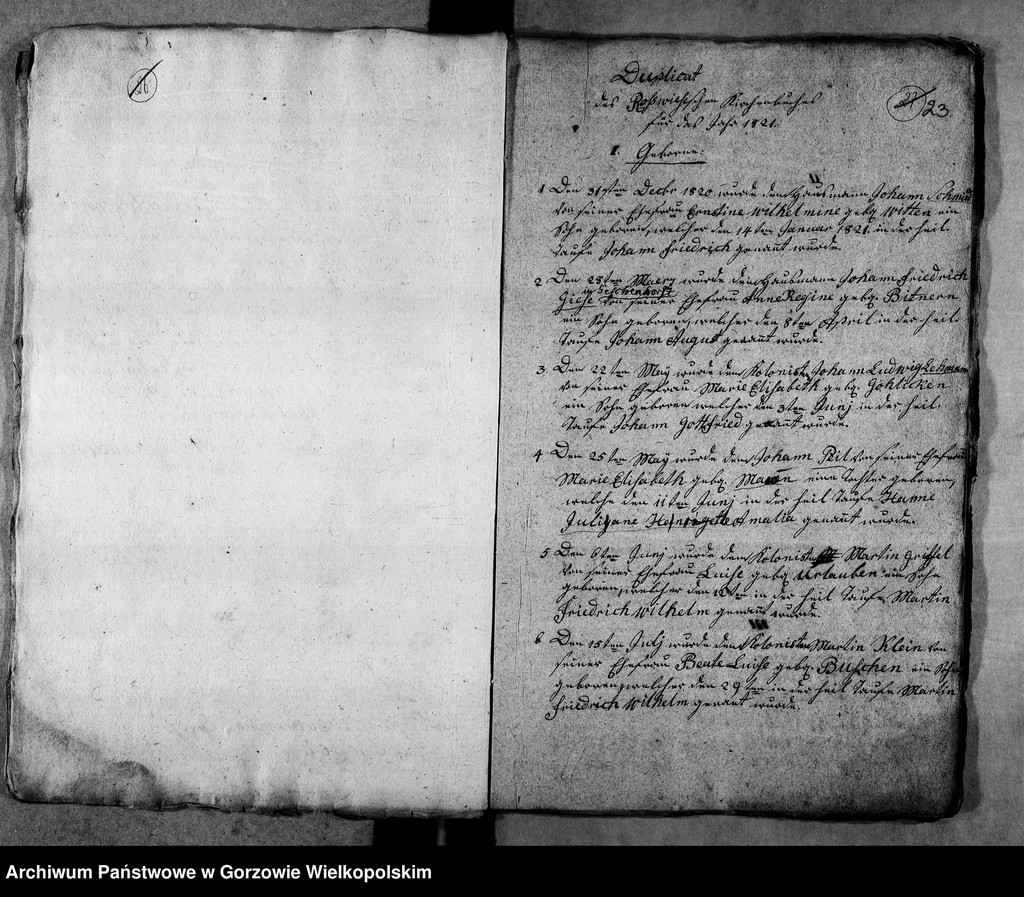 26
Duplicat
des Roßwieseschen Kirchenbuches
für das Jahr 1821.
23
1. Geborne:
1 Den 31sten Decbr 1820 wurde dem Hausmann Johann Schmidt
von seiner Ehefrau Ernstine Wilhelmine gebg. Witten ein
Sohn geboren, welcher den 14ten Januar 1821. in der heil.
Taufe Johann Friedrich genannt wurde.
2 Den 28ten Maerz wurde dem Hausmann Johann Friedrich
Giese von seiner Ehefrau Anne Regine gebg. Bitnern
ein Sohn geboren, welcher den 8ten April in der heil.
Taufe Johann August genannt wurde.
3. Den 22ten May wurde dem Kolonist Johann Ludwig Lehmann
von seiner Ehefrau Marie Elisabeth gebg. Gohlicken
ein Sohn geboren welcher den 3ten Junj in der heil.
Taufe Johann Gottfried genannt wurde.
4 Den 25ten May wurde dem Johann Pit von seiner Ehefrau
Marie Elisabeth gebg. eine Tochter geboren,
welche den 11ten Junj in der heil Taufe Hanne
Amalia genannt wurde.
5 Den 6ten Junj wurde dem Kolonist Martin Grissel
von seiner Ehefrau Luise gebg Urlauben ein Sohn
geboren, welcher den in der heil Taufe Martin
Friedrich Wilhelm genannt wurde.
6 Den 15ten Julj wurde dem Kolonisten Martin Klein von
seiner Ehefrau Beate Luise gebg. Buschen ein Sohn
geboren, welcher den 29ten in der heil Taufe Martin
Friedrich Wilhelm genannt wurde.
Archiwum Państwowe w Gorzowie Wielkopolskim